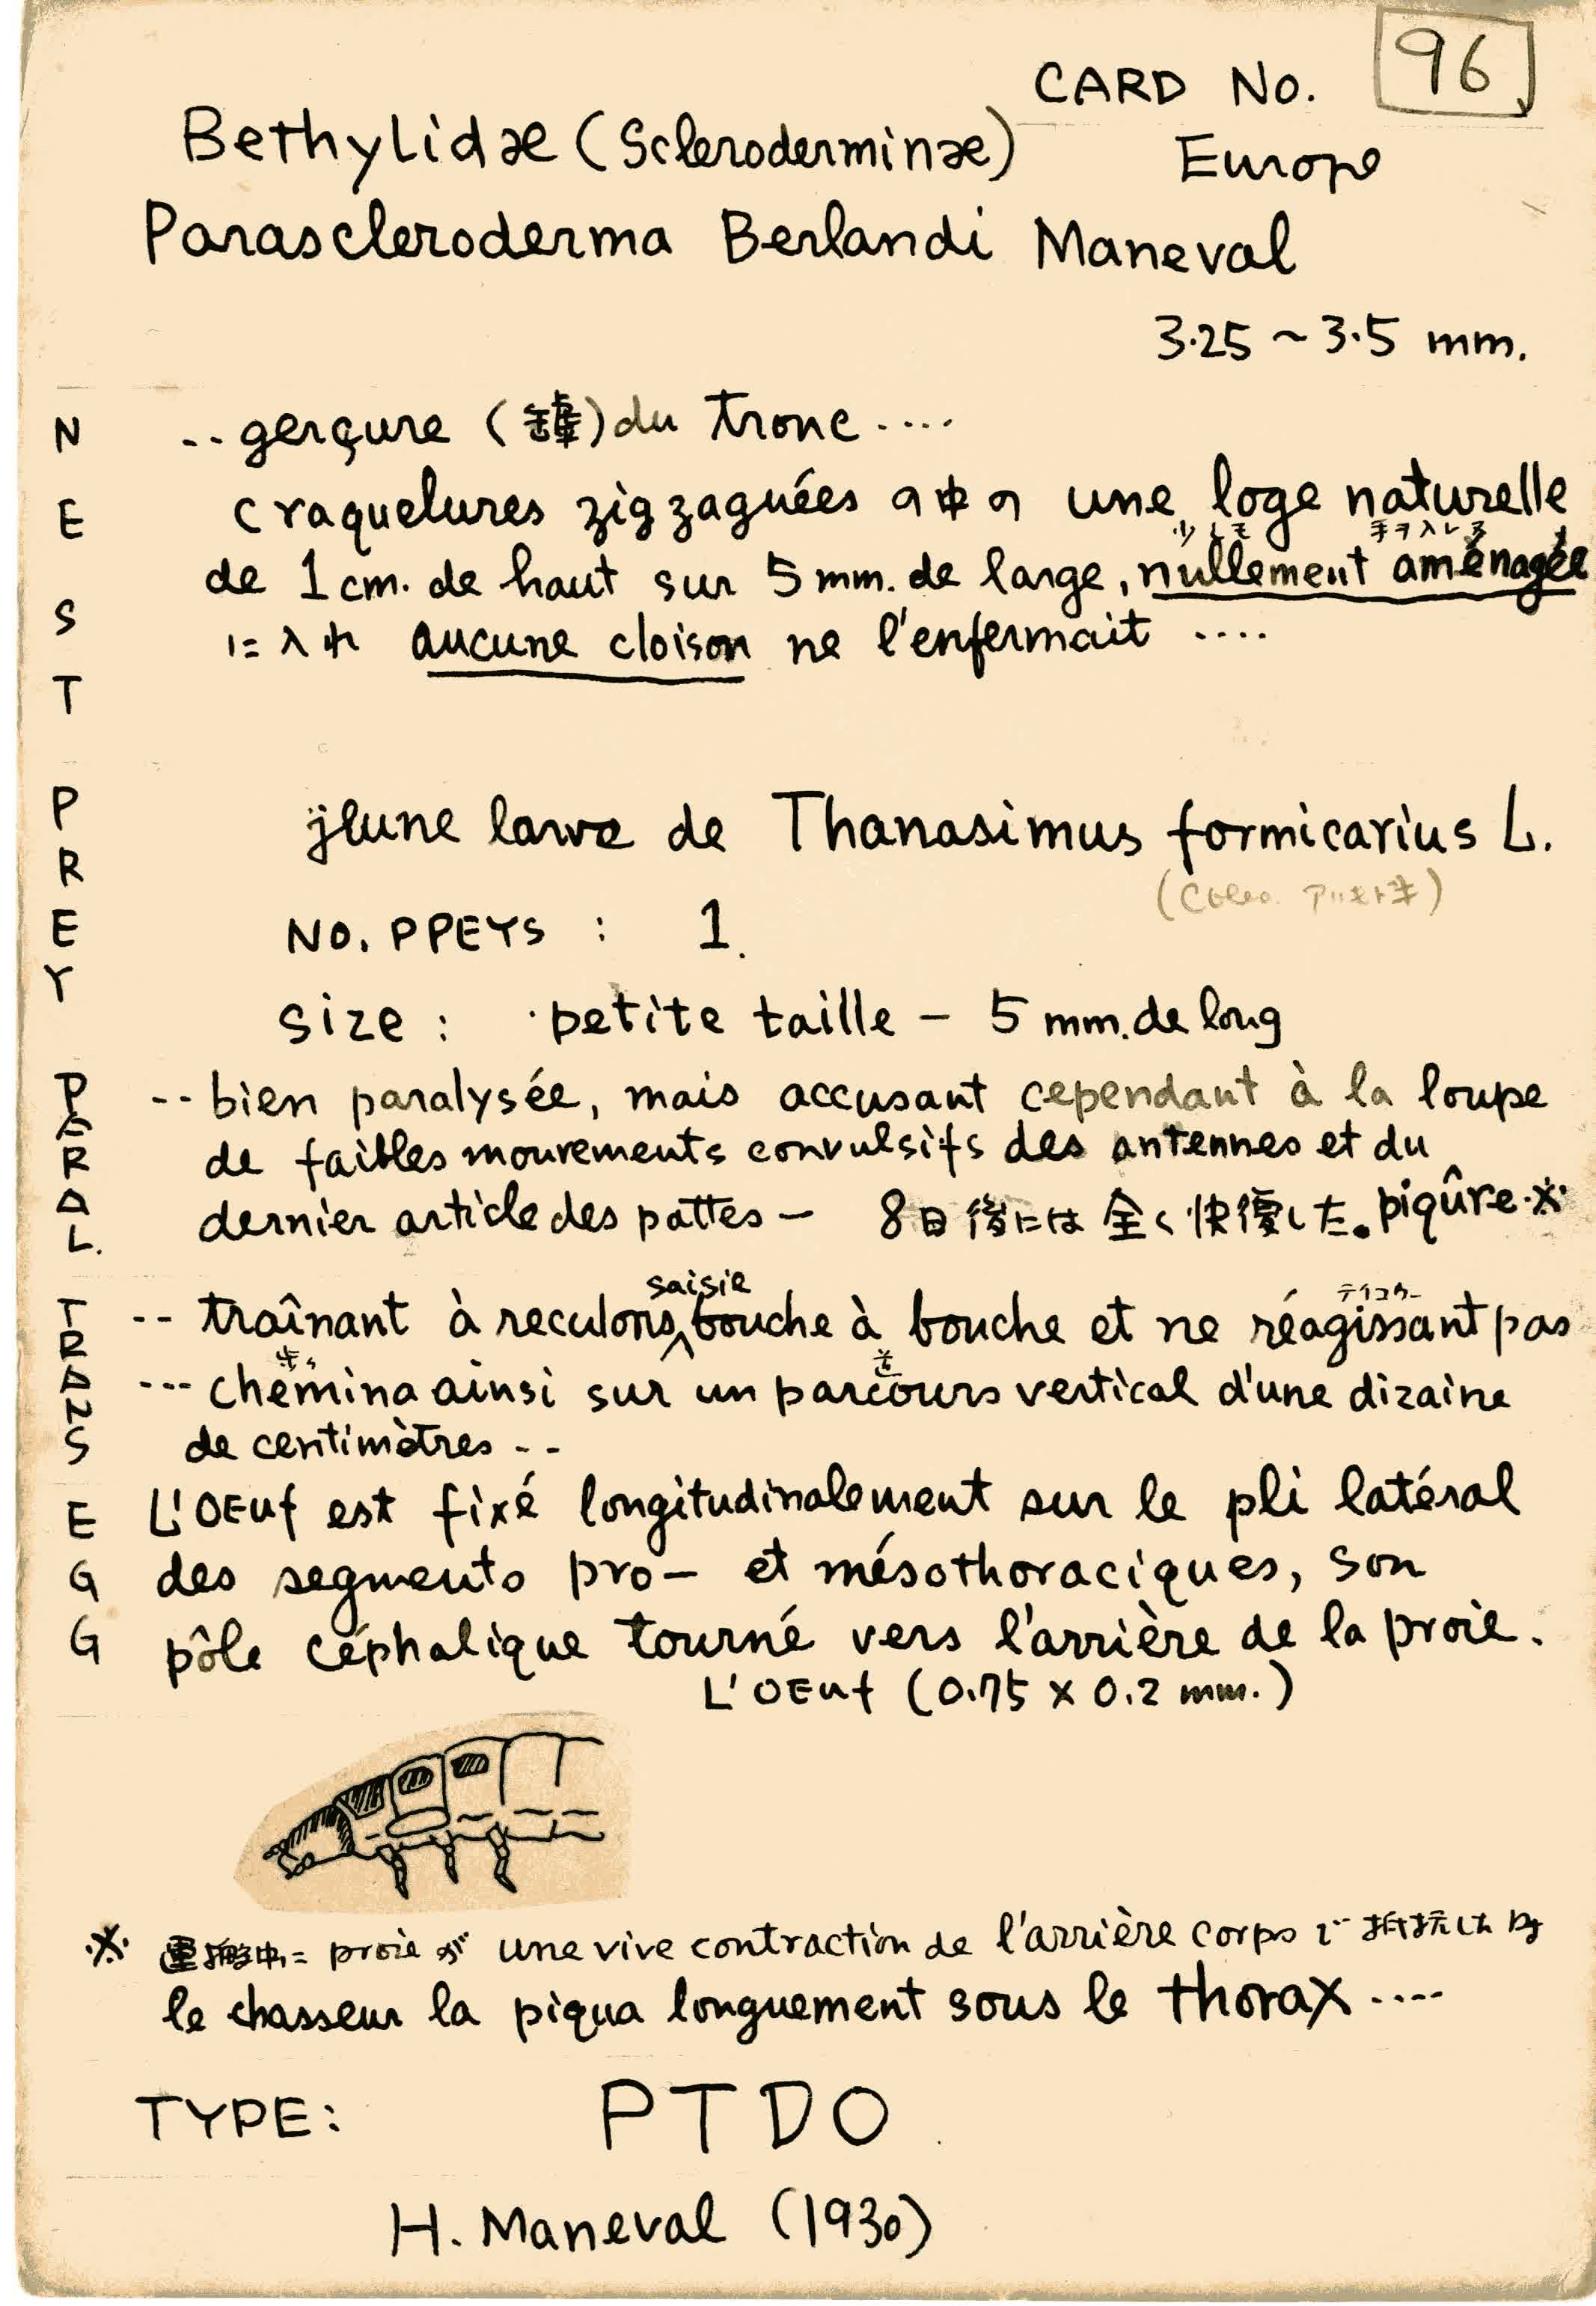 CARD No. 96
Bethylidæ (Scleroderminæ) Europe
Parascleroderma Berlandi Maneval
3.25 ~ 3.5 mm.
NEST
-- gerçure (罅) du tronc ....
craquelures zigzaguées の中の une loge naturelle
少しモ 手ヲ入レ
de 1 cm. de haut sur 5 mm. de large, nullement aménagée
に入れ aucune cloison ne l'enfermait ....
PREY
jeune larve de Thanasimus formicarius L.
(Coleo.
NO. PPEYS : 1.
size : petite taille — 5 mm. de long
PARAL.
-- bien paralysée, mais accusant cependant à la loupe
de faibles mouvements convulsifs des antennes et du
dernier article des pattes — 8日後には全く快復した。piqûre ※
TRANS
saisie テイコウ
-- traînant à reculons, bouche à bouche et ne réagissant pas
歩ク
--- chemina ainsi sur un parcours vertical d'une dizaine
de centimètres --
EGG
L'OEuf est fixé longitudinalement sur le pli latéral
des segments pro- et mésothoraciques, son
pôle céphalique tourné vers l'arrière de la proie.
L'OEuf (0.75 x 0.2 mm.)
※ 運搬中ニ proie が une vive contraction de l'arrière corps で抵抗した時
le chasseur la piqua longuement sous le thorax ....
TYPE: PTDO
H. Maneval (1930)